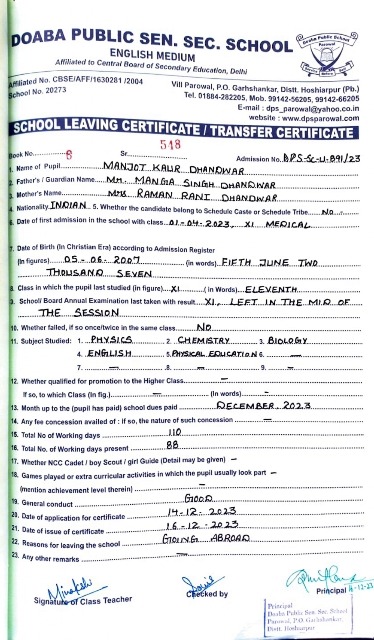 DOABA PUBLIC SEN. SEC. SCHOOL
ENGLISH MEDIUM
Affiliated to Central Board of Secondary Education, Delhi
Doaba Public School
Parowal
Affiliated No. CBSE/AFF/1630281 /2004
School No. 20273
Vill Parowal, P.O. Garhshankar, Distt. Hoshiarpur (Pb.)
Tel. 01884-282205, Mob. 99142-56205, 99142-66205
E-mail : dps_parowal@yahoo.co.in
website : www.dpsparowal.com
SCHOOL LEAVING CERTIFICATE / TRANSFER CERTIFICATE
Book No. 6 Sr. 548 Admission No. DPS-Sc-U-891/23
1. Name of Pupil MANJOT KAUR DHANDWAR
2. Father's / Guardian Name MR. MANGA SINGH DHANDWAR
3. Mother's Name MRS RAMAN RANI DHANDWAR
4. Nationality INDIAN 5. Whether the candidate belong to Schedule Caste or Schedule Tribe NO
6. Date of first admission in the school with class 01-04-2023, XI MEDICAL
7. Date of Birth (In Christian Era) according to Admission Register
(In figures) 05-06-2007 (in words) FIFTH JUNE TWO
THOUSAND SEVEN
8. Class in which the pupil last studied (in figure) XI (in Words) ELEVENTH
9. School/ Board Annual Examination last taken with result XI, LEFT IN THE MID OF
THE SESSION
10. Whether failed, if so once/twice in the same class NO
11. Subject Studied : 1. PHYSICS 2. CHEMISTRY 3. BIOLOGY
4. ENGLISH 5. PHYSICAL EDUCATION 6. —
7. — 8. — 9. —
12. Whether qualified for promotion to the Higher Class —
If so, to which Class (In fig.) — (In words) —
13. Month up to the (pupil has paid) school dues paid DECEMBER 2023
14. Any fee concession availed of : if so, the nature of such concession —
15. Total No of Working days 110
16. Total No. of Working days present 88
17. Whether NCC Cadet / boy Scout / girl Guide (Detail may be given) —
18. Games played or extra curricular activities in which the pupil usually look part —
(mention achievement level therein) —
19. General conduct GOOD
20. Date of application for certificate 14-12-2023
21. Date of issue of certificate 16-12-2023
22. Reasons for leaving the school GOING ABROAD
23. Any other remarks —
Signature of Class Teacher Checked by Principal
Principal
Doaba Public Sen. Sec. School
Parowal, P.O. Garhshankar,
Distt. Hoshiarpur